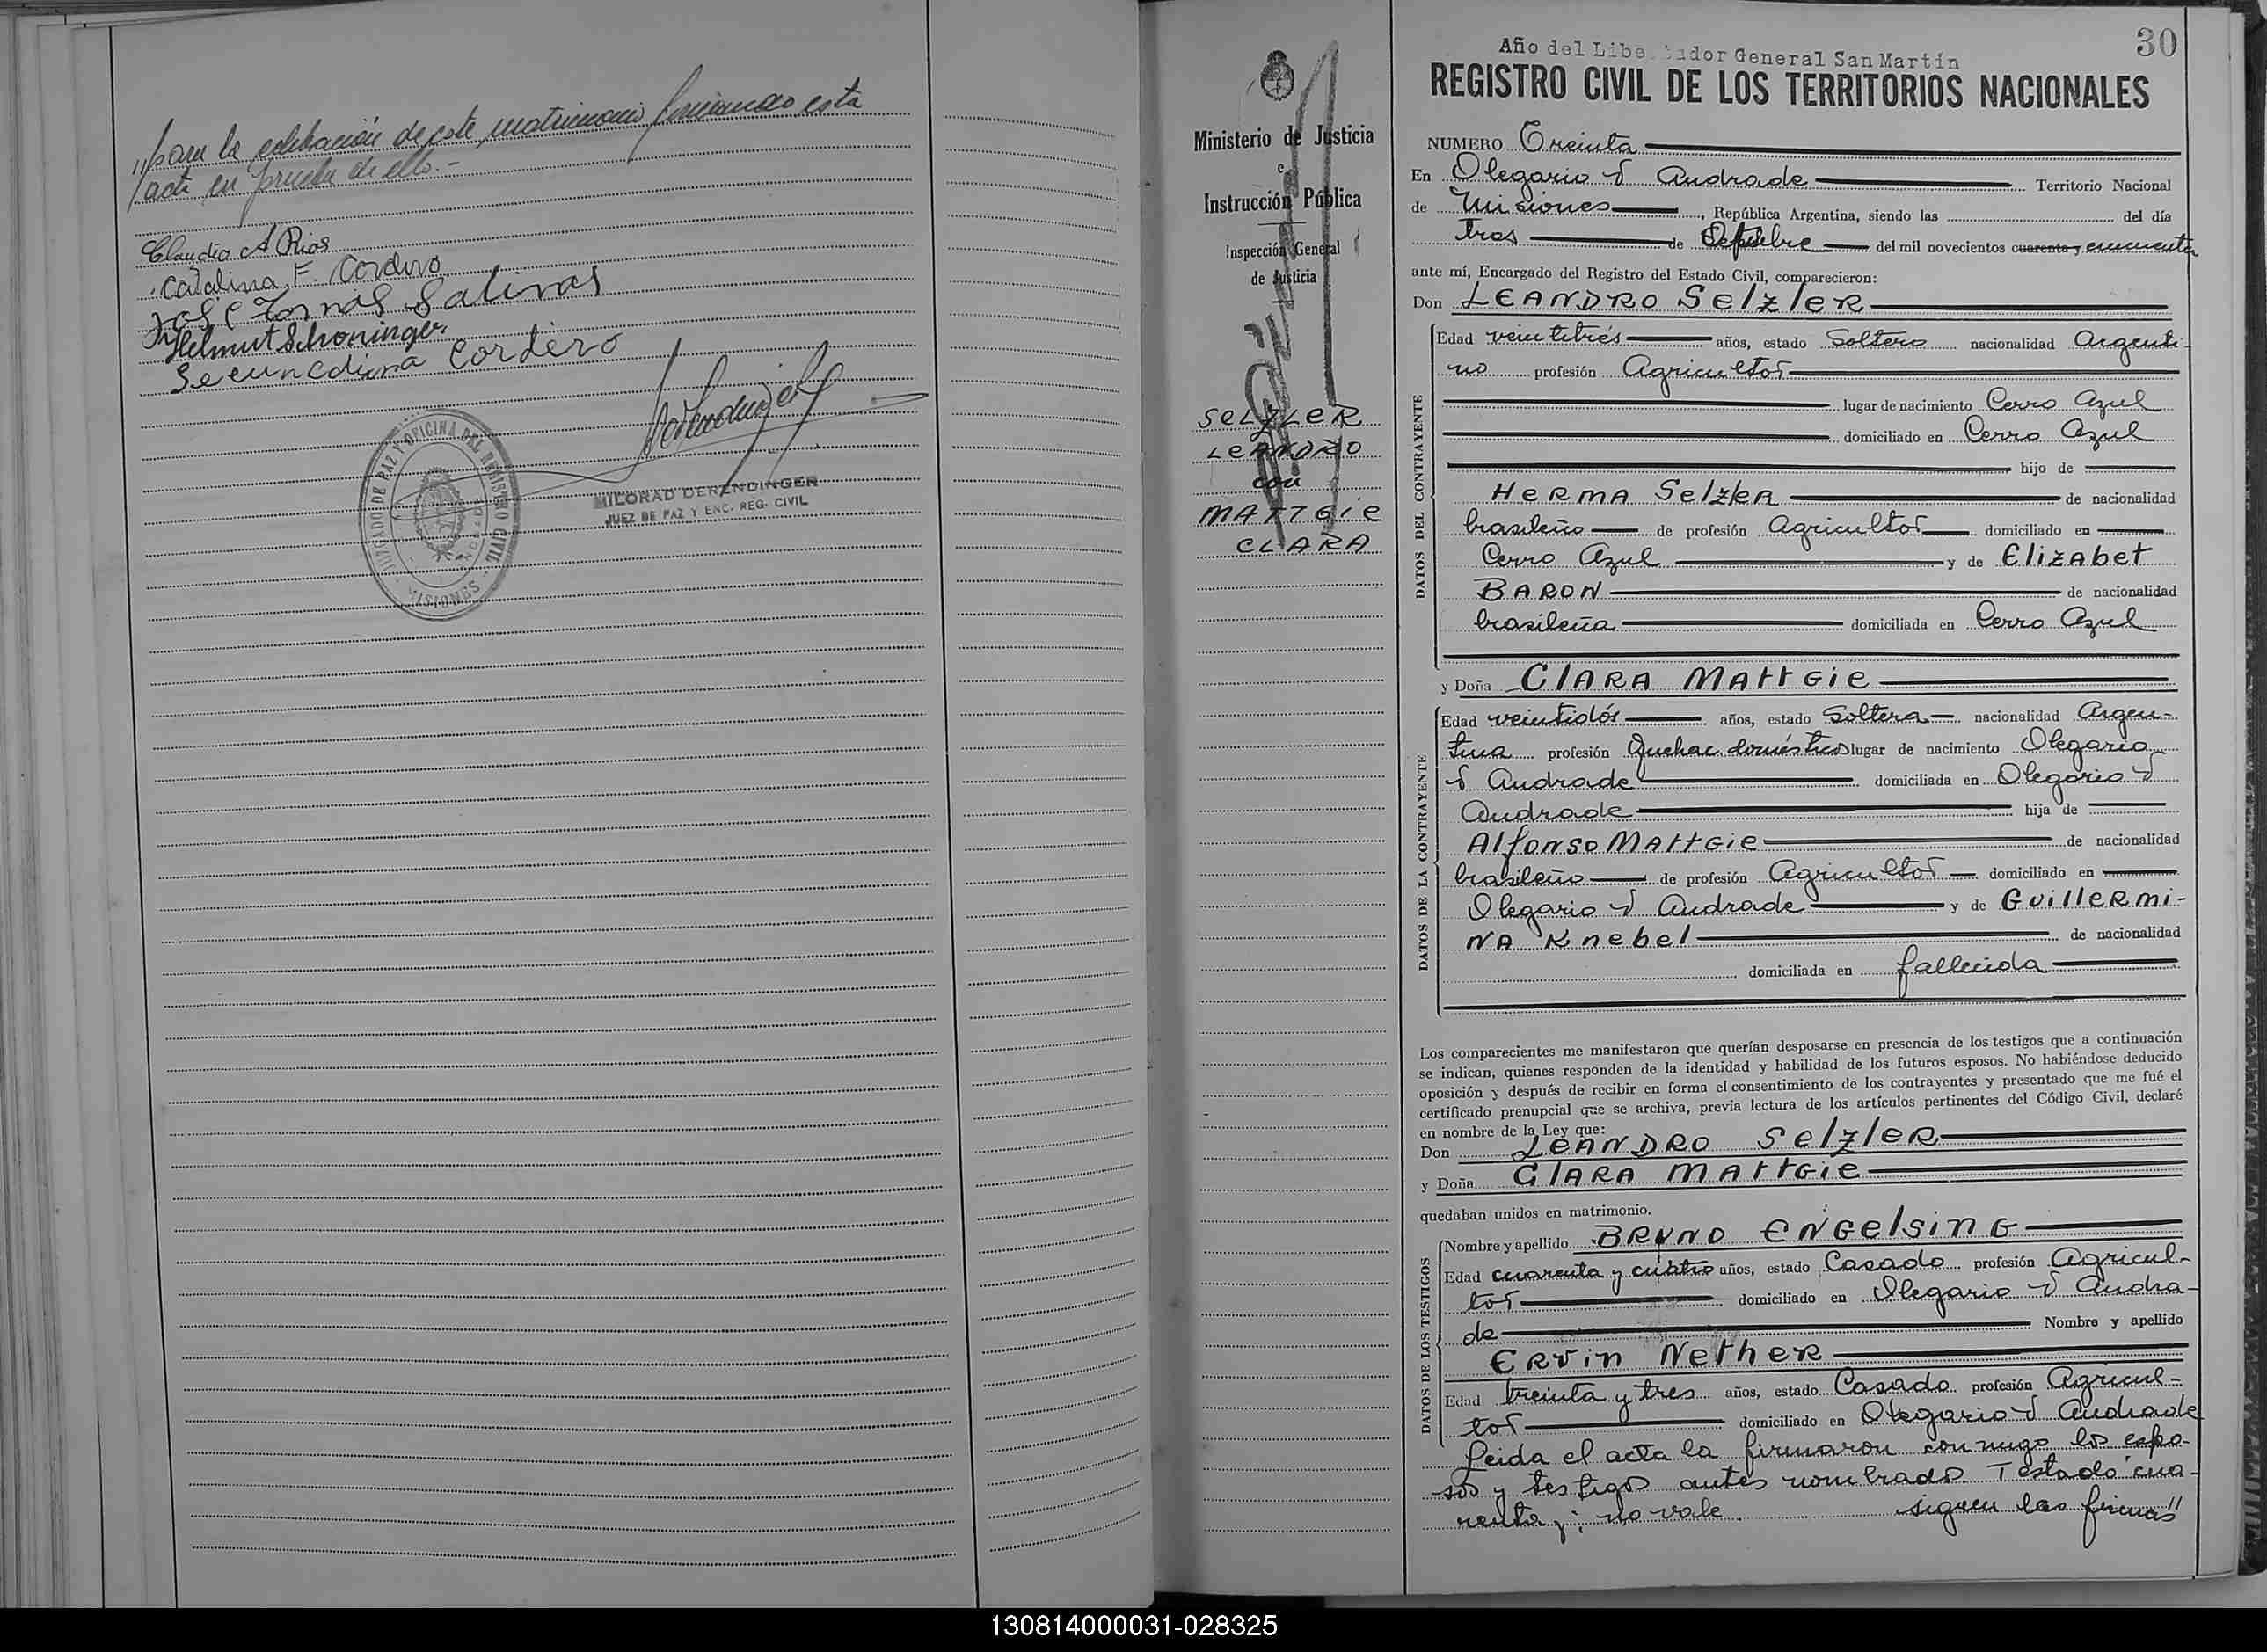 "para la celebración de este matrimonio firmando esta
acta en prueba de ello.-
Claudio A Rios
Catalina F. Cordero
José Tomás Salinas
Helmut Schoninger
Secuncdina Cordero
JUZGADO DE PAZ Y OFICINA DEL REGISTRO CIVIL
MISIONES
MILORAD DERENDINGER
JUEZ DE PAZ Y ENC. REG. CIVIL
Ministerio de Justicia
e
Instrucción Pública
Inspección General
de Justicia
SELZLER
LEANDRO
con
MATTGIE
CLARA
30
Año del Libe tador General San Martín
REGISTRO CIVIL DE LOS TERRITORIOS NACIONALES
NUMERO Treinta
En Olegario V Andrade Territorio Nacional
de Misiones, República Argentina, siendo las del día
tres de del mil novecientos cuarenta y cincuenta
ante mí, Encargado del Registro del Estado Civil, comparecieron:
Don LEANDRO Selzler
DATOS DEL CONTRAYENTE
Edad veintitrés años, estado Soltero nacionalidad Argenti-
no profesión Agricultor
lugar de nacimiento Cerro Azul
domiciliado en Cerro Azul
hijo de
HERMA Selzler de nacionalidad
brasileño de profesión Agricultor domiciliado en
Cerro Azul y de Elizabet
BARON de nacionalidad
brasileña domiciliada en Cerro Azul
y Doña CLARA MATTGIE
DATOS DE LA CONTRAYENTE
Edad veintidós años, estado Soltera nacionalidad Argen-
tina profesión Quehac. domésticos lugar de nacimiento Olegario
V Andrade domiciliada en Olegario V
Andrade hija de
Alfonso MATTGIE de nacionalidad
brasileño de profesión Agricultor domiciliado en
Olegario V Andrade y de GuilleRmi-
NA Knebel de nacionalidad
domiciliada en fallecida
Los comparecientes me manifestaron que querían desposarse en presencia de los testigos que a continuación
se indican, quienes responden de la identidad y habilidad de los futuros esposos. No habiéndose deducido
oposición y después de recibir en forma el consentimiento de los contrayentes y presentado que me fué el
certificado prenupcial que se archiva, previa lectura de los artículos pertinentes del Código Civil, declaré
en nombre de la Ley que:
Don LEANDRO Selzler
y Doña CLARA MATTGIE
quedaban unidos en matrimonio.
DATOS DE LOS TESTIGOS
Nombre y apellido BRUNO ENGelsinG
Edad cuarenta y cuatro años, estado Casado profesión Agricul-
tor domiciliado en Olegario V Andra-
de Nombre y apellido
ERvin NetheR
Edad treinta y tres años, estado Casado profesión Agricul-
tor domiciliado en Olegario V Andrade
Leida el acta la firmaron conmigo los espo-
sos y testigos antes nombrados. Testado "cua-
renta y": no vale. siguen las firmas"
130814000031-028325